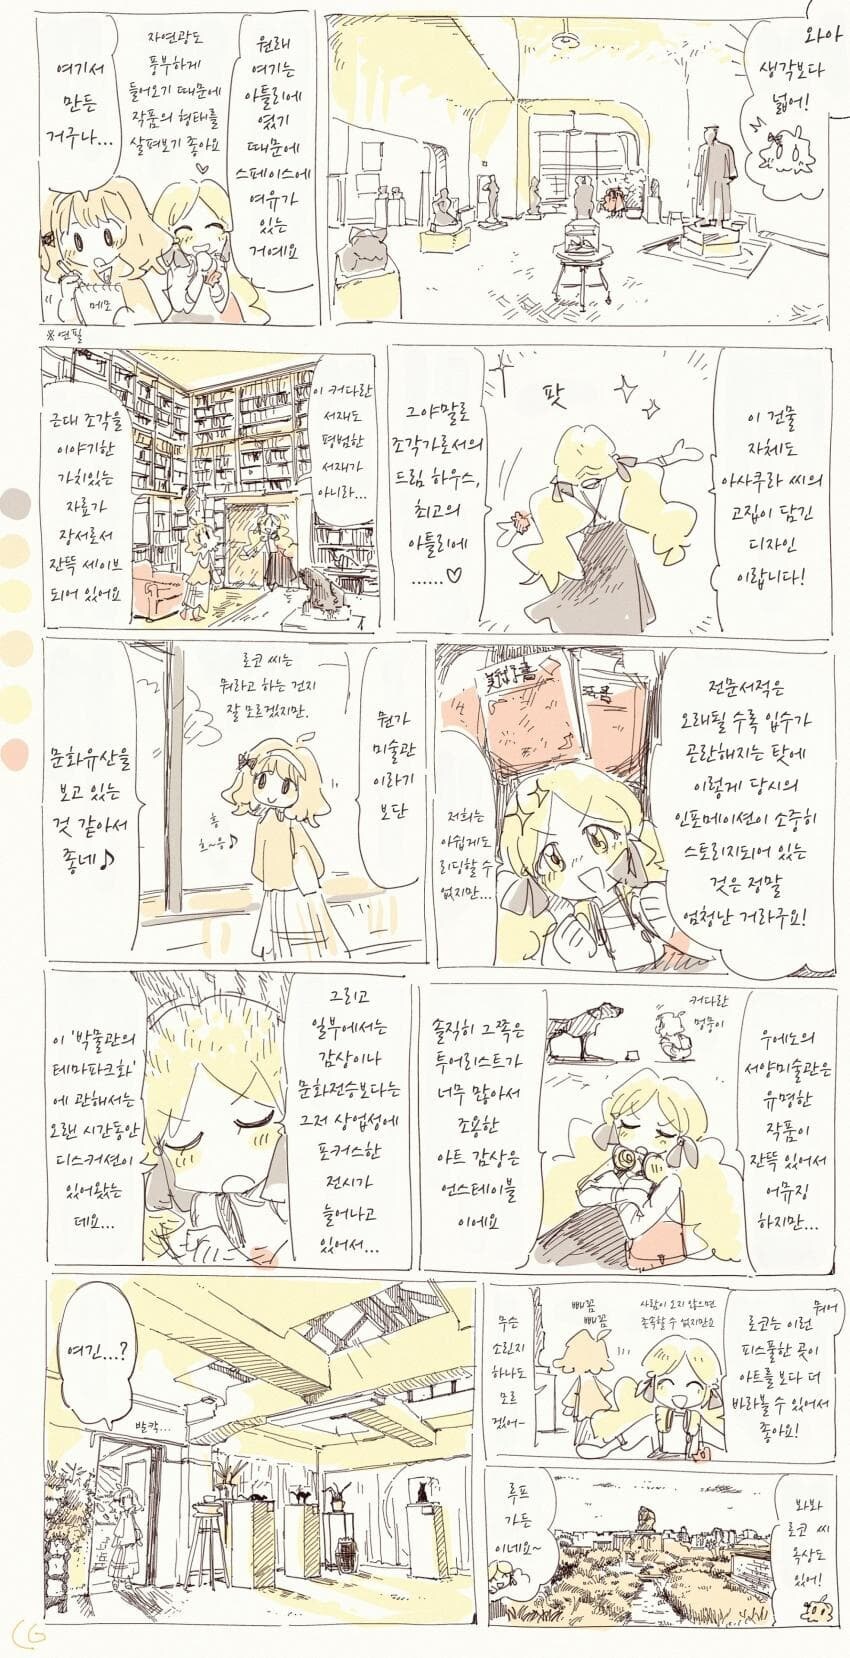 와아
생각보다
넓어!
원래
여기는
아틀리에
였기
때문에
스페이스에
여유가
있는
거예요
자연광도
풍부하게
들어오기 때문에
작품의 형태를
살펴보기 좋아요
여기서
만든
거구나...
메모
※연필
이 건물
자체도
아사쿠라 씨의
고집이 담긴
디자인
이랍니다!
팟
그야말로
조각가로서의
드림 하우스,
최고의
아틀리에
......♡
이 커다란
서재도
평범한
서재가
아니라...
근대 조각을
이야기한
가치있는
자료가
장서로서
잔뜩 세이브
되어 있어요
전문서적은
오래될 수록 입수가
곤란해지는 탓에
이렇게 당시의
인포메이션이 소중히
스토리지되어 있는
것은 정말
엄청난 거라구요!
저희는
아쉽게도
리딩할 수
없지만...
뭔가
미술관
이라기
보단
로코 씨는
뭐라고 하는 건지
잘 모르겠지만.
흥
흐~응♪
문화유산을
보고 있는
것 같아서
좋네♪
우에노의
서양미술관은
유명한
작품이
잔뜩 있어서
어뮤징
하지만...
커다란
멍뭉이
솔직히 그쪽은
투어리스트가
너무 많아서
조용한
아트 감상은
언스테이블
이에요
그리고
일부에서는
감상이나
문화전승보다는
그저 상업성에
포커스한
전시가
늘어나고
있어서...
이 '박물관의
테마파크화'
에 관해서는
오랜 시간동안
디스커션이
있어왔는
데요...
뭐어
로코는 이런
피스풀한 곳이
아트를 보다 더
바라볼 수 있어서
좋아요!
사람이 오지 않으면
존속할 수 없지만요
빼꼼
빼꼼
무슨
소린지
하나도
모르
겠어~
여긴...?
발칵...
와와
로코 씨
옥상도
있어!
루프
가든
이네요~
CG